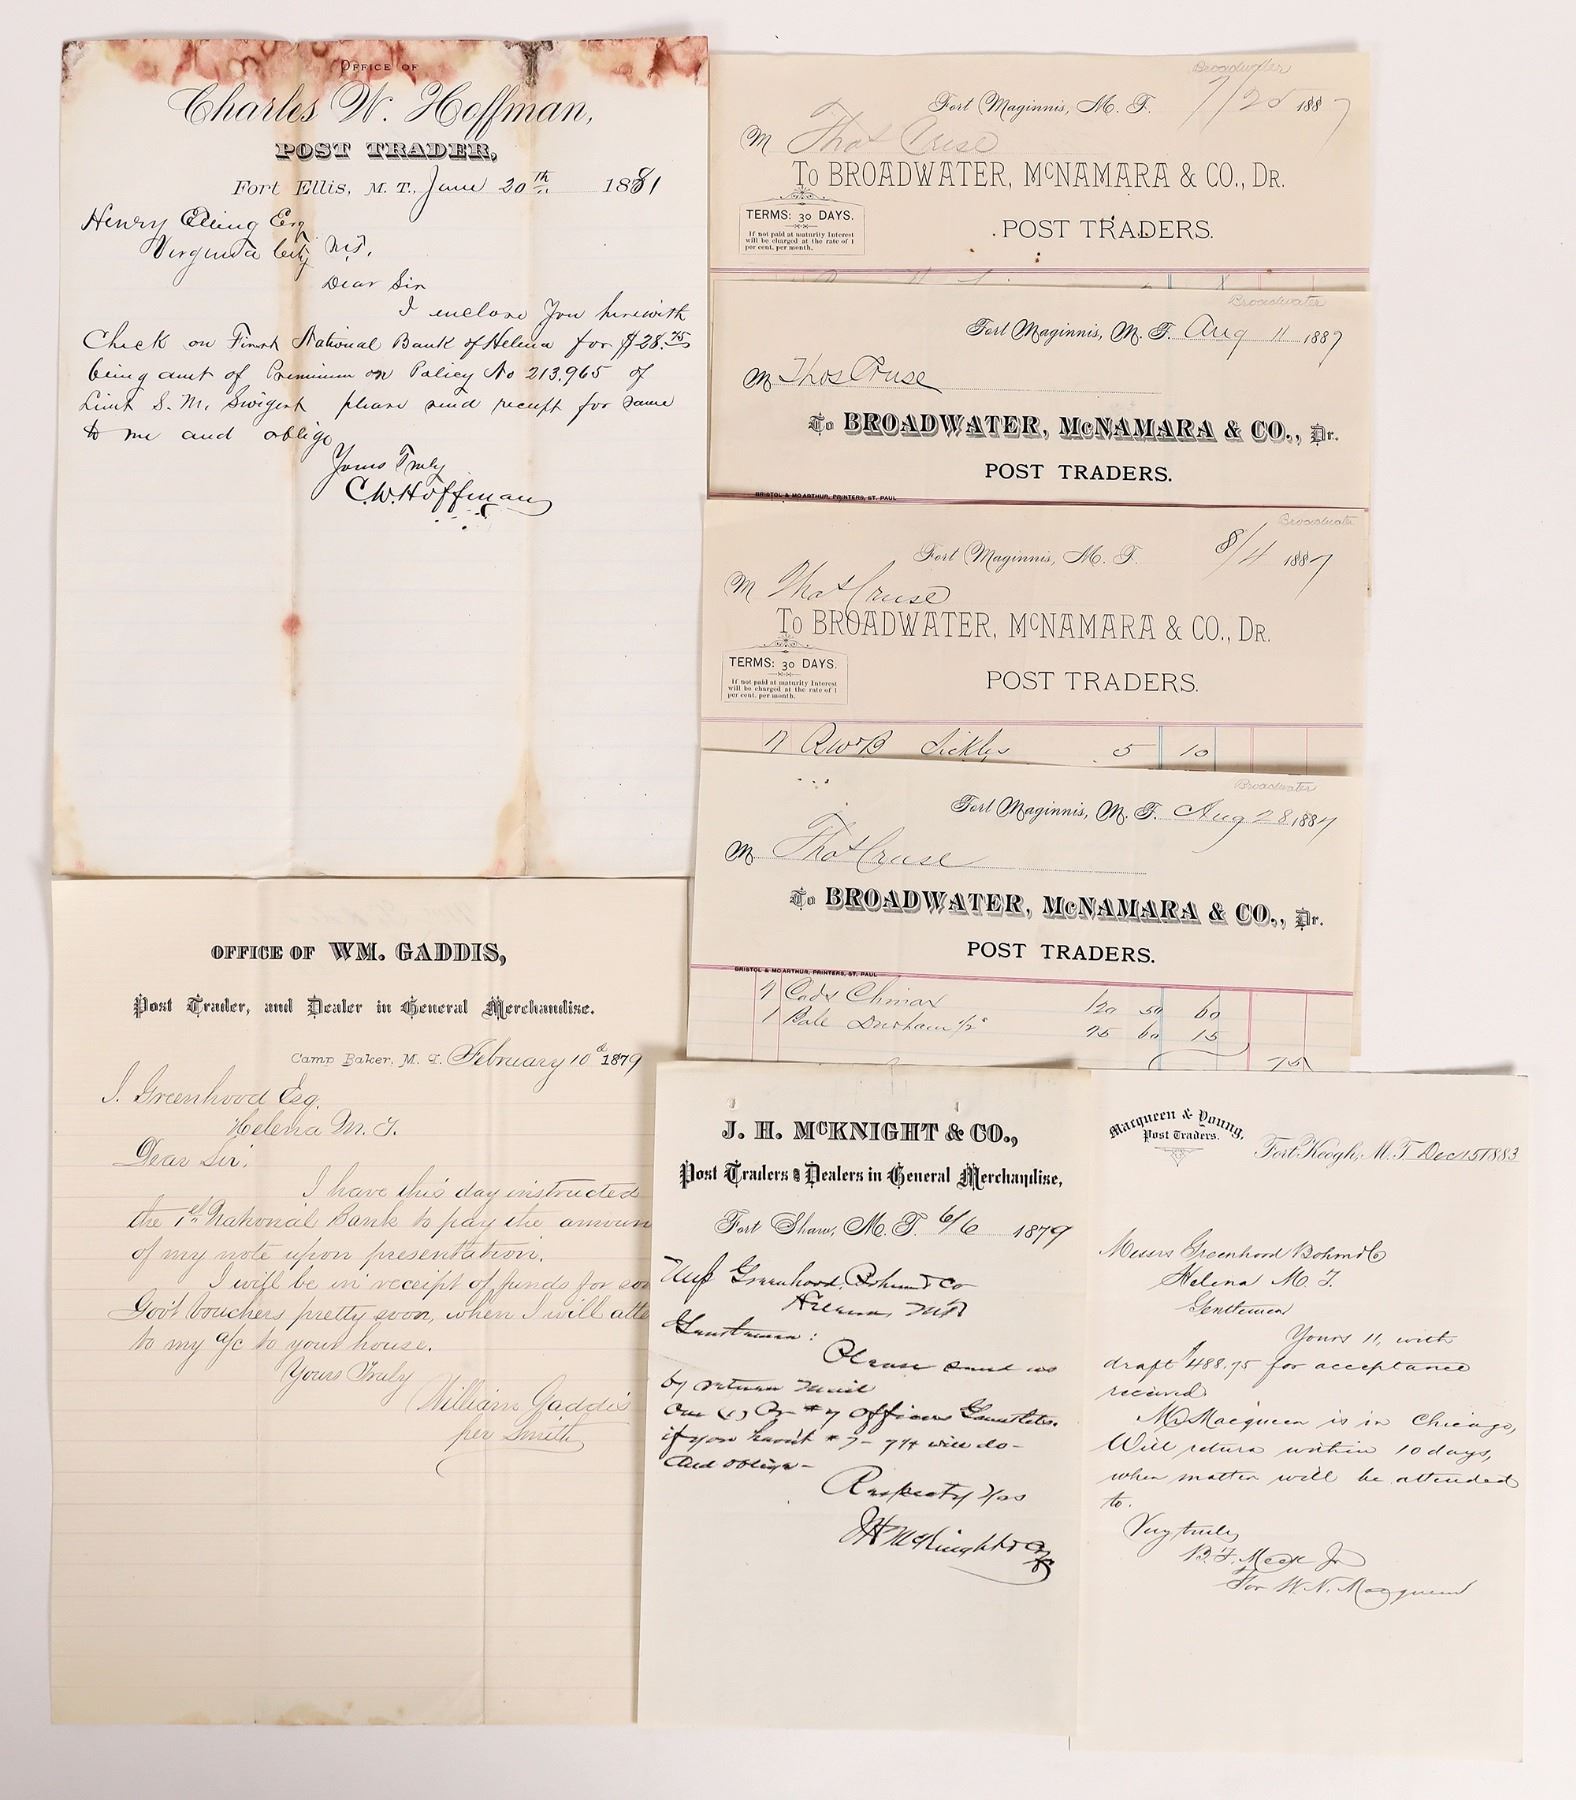 OFFICE OF
Charles W. Hoffman,
POST TRADER,
Fort Ellis, M. T., June 20th 1881
Henry Elling Esq
Virginia City M.T.
Dear Sir
I enclose you herewith
Check on First National Bank of Helena for $28.75
being amt of Premium on Policy No 213.965 of
Lieut S. M. Swigert please send receipt for same
to me and oblige
Yours Truly
C. W. Hoffman
Broadwater
Fort Maginnis, M. T. 7/25 1887
M Thos Cruse
To BROADWATER, McNAMARA & CO., Dr.
POST TRADERS.
TERMS: 30 DAYS.
If not paid at maturity Interest
will be charged at the rate of 1
per cent. per month.
Broadwater
Fort Maginnis, M. T. Aug 11 1887
M Thos Cruse
To BROADWATER, McNAMARA & CO., Dr.
POST TRADERS.
BRISTOL & McARTHUR, PRINTERS, ST. PAUL
Broadwater
Fort Maginnis, M. T. 8/4 1887
M Thos Cruse
To BROADWATER, McNAMARA & CO., Dr.
POST TRADERS.
TERMS: 30 DAYS.
If not paid at maturity Interest
will be charged at the rate of 1
per cent. per month.
Sickles 5 10
Broadwater
Fort Maginnis, M. T. Aug 28 1887
M Thos Cruse
To BROADWATER, McNAMARA & CO., Dr.
POST TRADERS.
BRISTOL & McARTHUR, PRINTERS, ST. PAUL
Climax 120 50 60
1 Bale Durham 1/2s 25 60 15
75
OFFICE OF WM. GADDIS,
Post Trader, and Dealer in General Merchandise.
Camp Baker, M. T. February 10th 1879
I. Greenhood Esq.
Helena M. T.
Dear Sir:
I have this day instructed
the 1st National Bank to pay the amoun
of my note upon presentation.
I will be in receipt of funds for so
Gov't Vouchers pretty soon, when I will atte
to my a/c to your house.
Yours Truly
William Gaddis
per Smith
J. H. McKNIGHT & CO.,
Post Traders & Dealers in General Merchandise,
Fort Shaw, M. T. 6/6 1879
Greenhood, Bohm & Co
Helena, M T
Gentlemen:
Please send us
by return mail
One (1) Pr #7 Officers Gauntlets.
if you havn't #7 - 7¼ will do -
And oblige -
J H McKnight & Co
Macqueen & Young,
Post Traders.
Fort Keogh, M. T. Dec 15 1883
Messrs Greenhood Bohm & Co
Helena M. T.
Gentlemen
Yours 11, with
draft $488.75 for acceptance
received
Mr Macqueen is in Chicago,
Will return within 10 days,
when matter will be attended
to.
Very truly
B. F. Meek Jr
For W. N. Macqueen